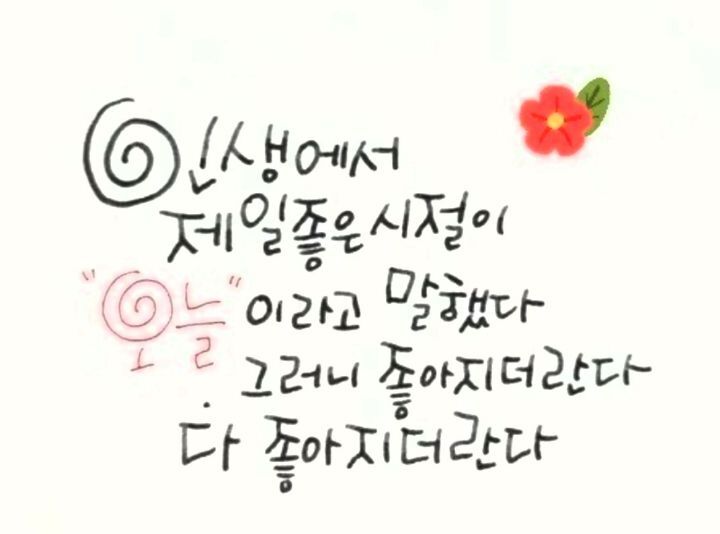 인생에서
제일좋은시절이
"오늘"이라고 말했다
그러니 좋아지더란다
다 좋아지더란다